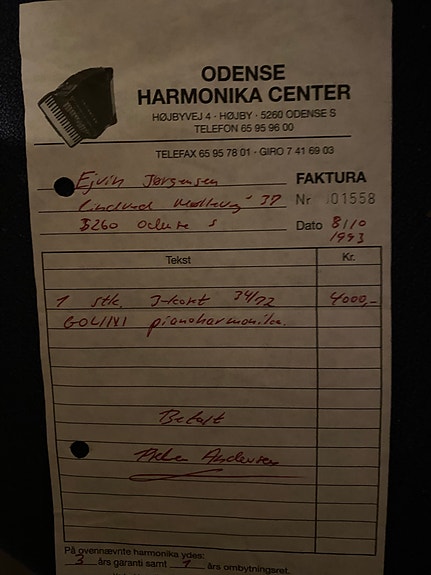 ODENSE
HARMONIKA CENTER
HØJBYVEJ 4 · HØJBY · 5260 ODENSE S
TELEFON 65 95 96 00
TELEFAX 65 95 78 01 · GIRO 7 41 69 03
FAKTURA
Ejvin Jørgensen
Nr 01558
37
5260 Odense S
Dato 8/10
1993
Tekst Kr.
1 stk. 34/72 4000,-
GOLINI pianoharmonika.
Betalt
Andersen
På ovennævnte harmonika ydes:
3 års garanti samt 1 års ombytningsret.